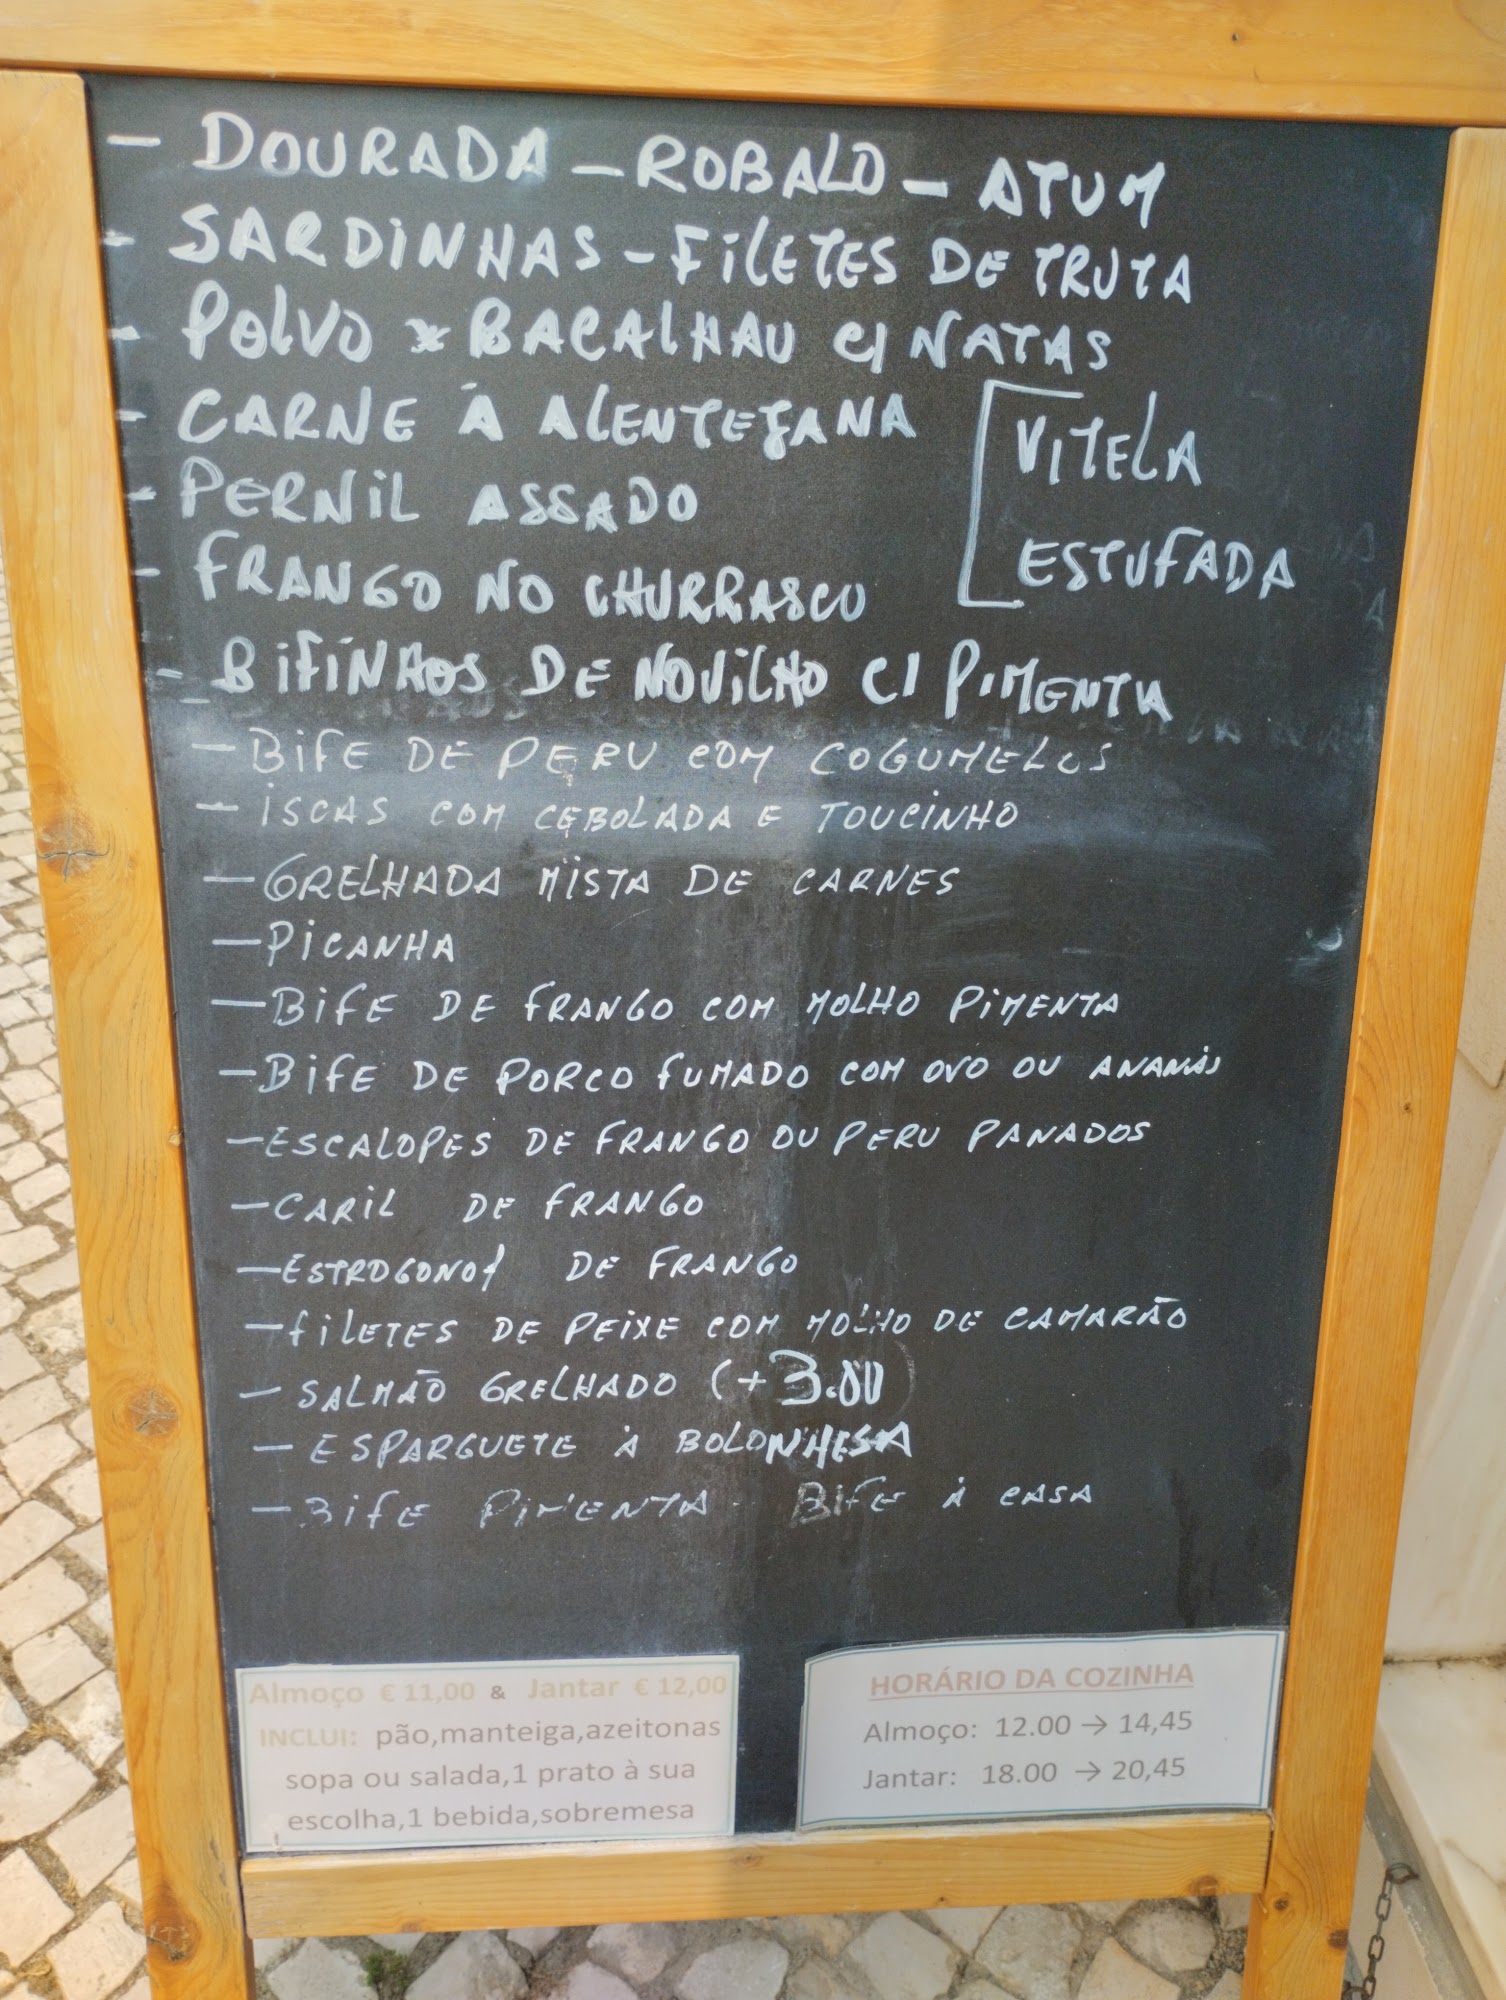 - DOURADA - ROBALO - ATUM
- SARDINHAS - FILETES DE TRUTA
- POLVO x BACALHAU C/ NATAS
- CARNE À ALENTEJANA
- PERNIL ASSADO
VITELA
ESTUFADA
- FRANGO NO CHURRASCO
- BIFINHOS DE NOVILHO C/ PIMENTA
- BIFE DE PERU COM COGUMELOS
- ISCAS COM CEBOLADA E TOUCINHO
- GRELHADA MISTA DE CARNES
- PICANHA
- BIFE DE FRANGO COM MOLHO PIMENTA
- BIFE DE PORCO FUMADO COM OVO OU ANANÁS
- ESCALOPES DE FRANGO OU PERU PANADOS
- CARIL DE FRANGO
- ESTROGONOf DE FRANGO
- FILETES DE PEIXE COM MOLHO DE CAMARÃO
- SALMÃO GRELHADO (+3.00
- ESPARGUETE À BOLONHESA
- BIFE PIMENTA BIFE À CASA
Almoço € 11,00 & Jantar € 12,00
INCLUI: pão,manteiga,azeitonas
sopa ou salada,1 prato à sua
escolha,1 bebida,sobremesa
HORÁRIO DA COZINHA
Almoço: 12.00 → 14,45
Jantar: 18.00 → 20,45